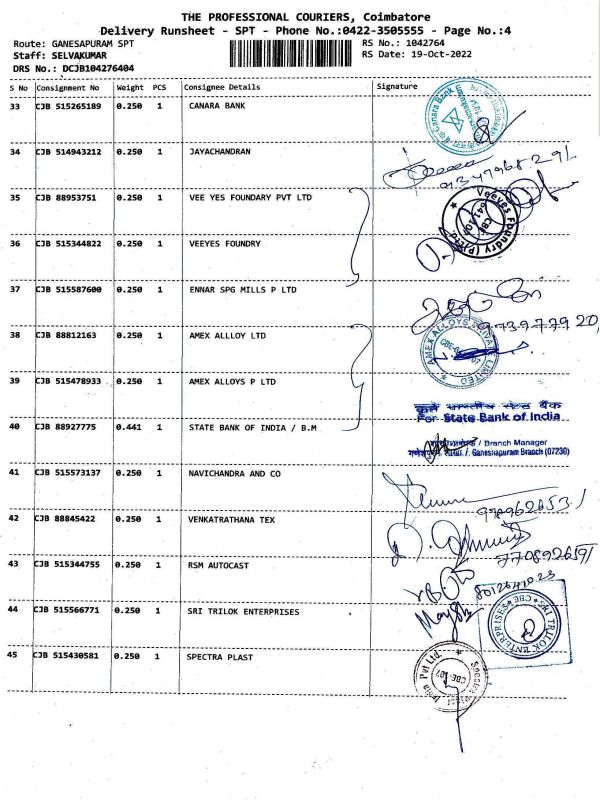 THE PROFESSIONAL COURIERS, Coimbatore
Delivery Runsheet - SPT - Phone No.:0422-3505555 - Page No.:4
Route: GANESAPURAM SPT
RS No.: 1042764
Staff: SELVAKUMAR
RS Date: 19-Oct-2022
DRS No.: DCJB104276404
S No Consignment No Weight PCS Consignee Details Signature
33 CJB 515265189 0.250 1 CANARA BANK
Canara Bank
34 CJB 514943212 0.250 1 JAYACHANDRAN
35 CJB 88953751 0.250 1 VEE YES FOUNDARY PVT LTD
Veeyes Foundry (P) Ltd
CBE
36 CJB 515344822 0.250 1 VEEYES FOUNDRY
37 CJB 515587600 0.250 1 ENNAR SPG MILLS P LTD
38 CJB 88812163 0.250 1 AMEX ALLLOY LTD
AMEX ALLOYS PRIVATE LIMITED
39 CJB 515478933 0.250 1 AMEX ALLOYS P LTD
कृते भारतीय स्टेट बैंक
For State Bank of India
40 CJB 88927775 0.441 1 STATE BANK OF INDIA / B.M
/ Branch Manager
/ Ganeshapuram Branch (07230)
41 CJB 515573137 0.250 1 NAVICHANDRA AND CO
42 CJB 88845422 0.250 1 VENKATRATHANA TEX
7708926591
43 CJB 515344755 0.250 1 RSM AUTOCAST
8012641023
44 CJB 515566771 0.250 1 SRI TRILOK ENTERPRISES
SRI TRILOK ENTERPRISES CBE
45 CJB 515430581 0.250 1 SPECTRA PLAST
India Pvt Ltd.